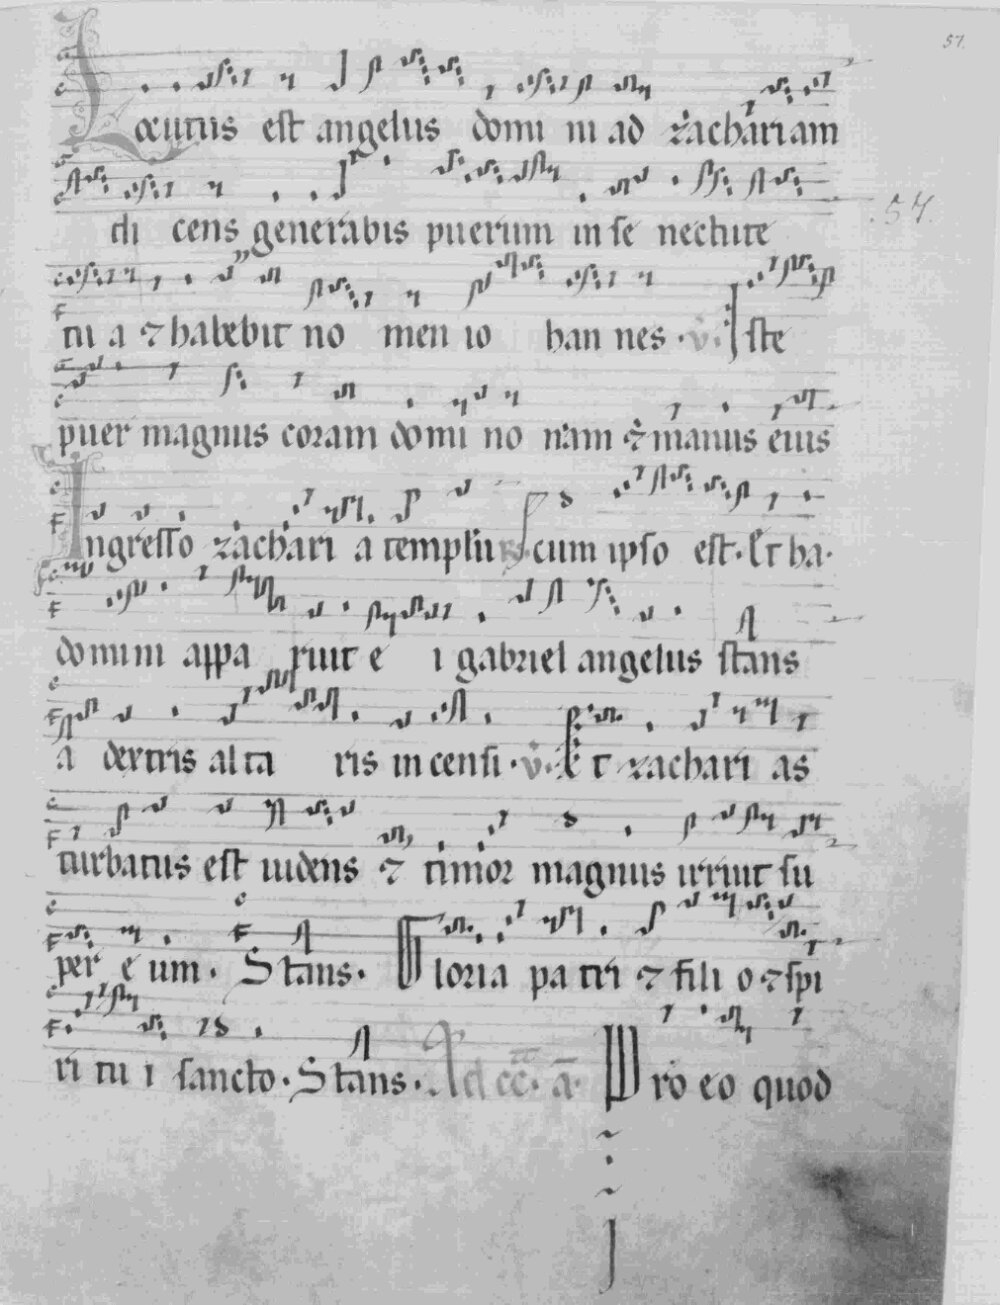 57
Locutus est angelus domi ni ad zachariam
di cens generabis puerum in se nectute
.54.
tu a ⁊ habebit no men io han nes · v̄. Iste
puer magnus coram domi no nam ⁊ manus eius
Ingresso zachari a templū cum ipso est · Et ha ·
domini appa ruit e i gabriel angelus stans
a dextris alta ris in censi · v̄. Et zachari as
turbatus est uidens ⁊ timor magnus irruit su
per e um · Stans · Gloria pa tri ⁊ fili o ⁊ spi
ri tu i sancto · Stans · Ad cc̄ · ā · Pro eo quod